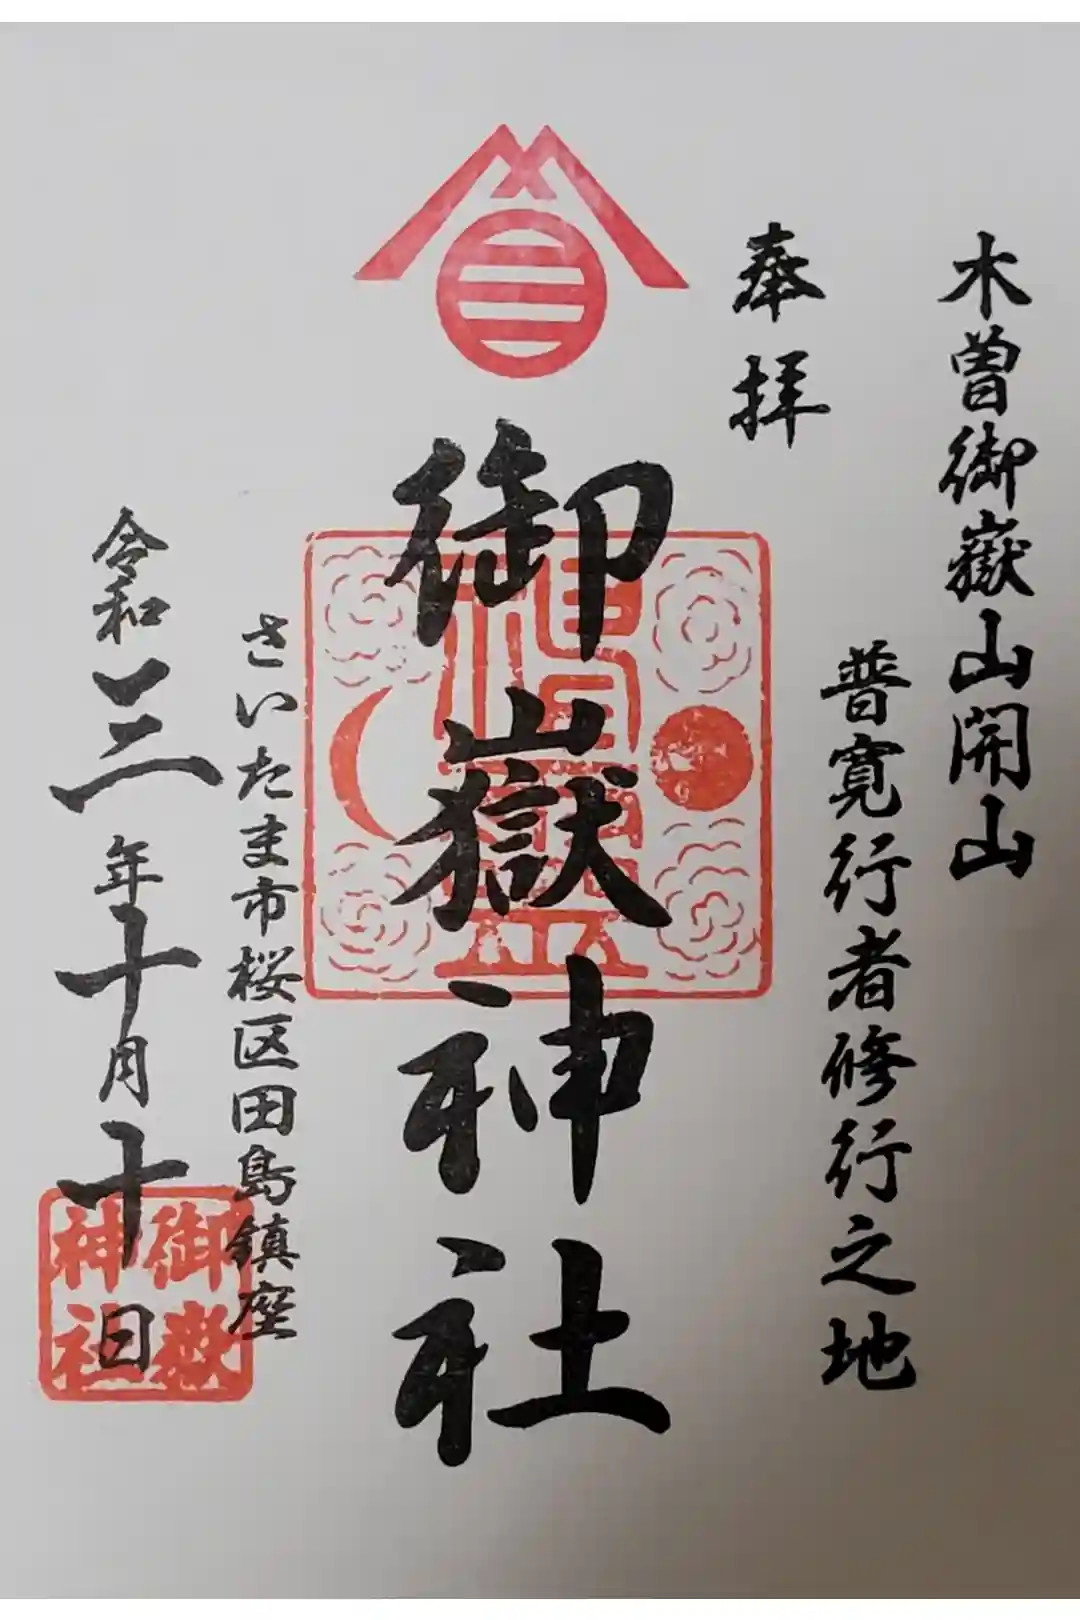 木曽御嶽山開山
普寛行者修行之地
奉拝
御嶽神社
さいたま市桜区田島鎮座
令和三年十月十日
御嶽
神社